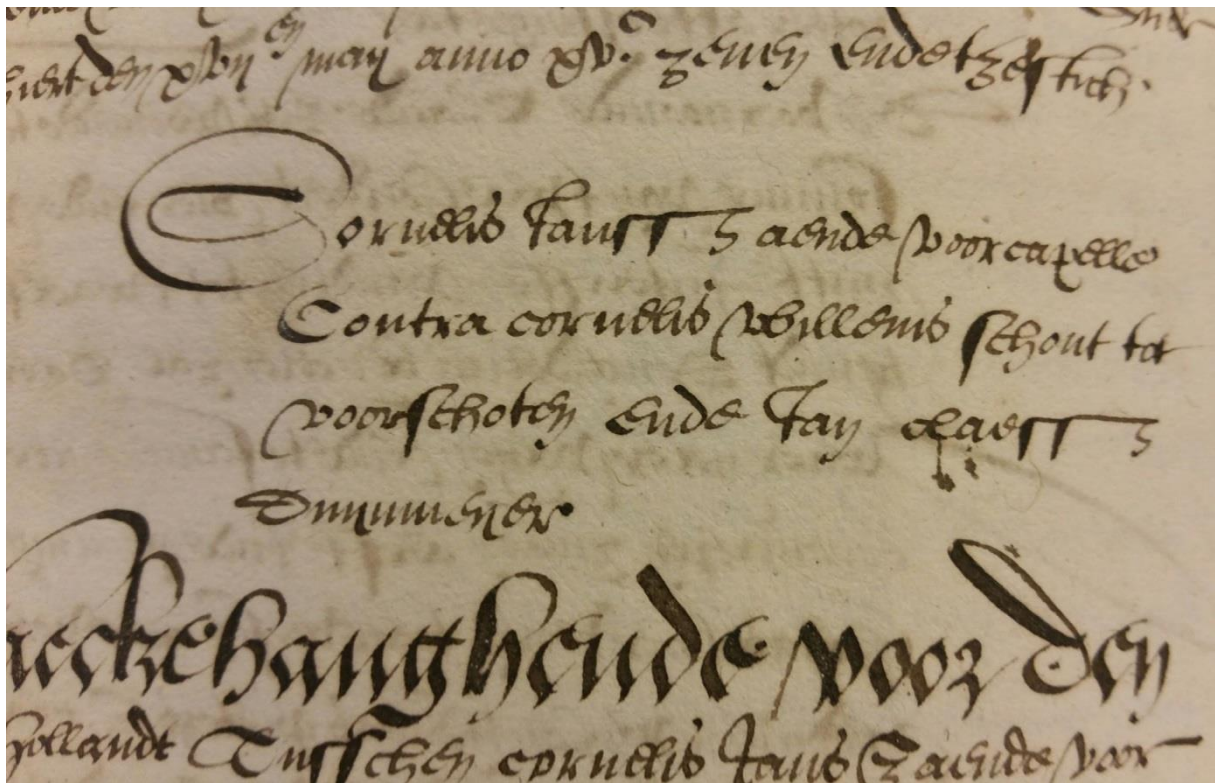 den xvij en maij anno xvc zeven ende tzestich.
Cornelis Janss z aende voorcapelle
Contra cornelis willems schout tot
voorschoten ende Jan claess z
aeckehanghende voor den
hollandt Tusschen cornelis Jans z aende voor